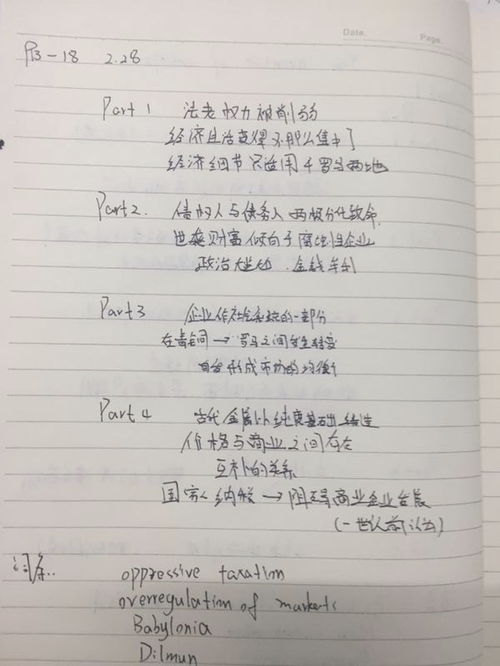 Date. Page.
P13-18 2.28
Part 1 法老权力被削弱
经济生活变得不那么集中了
经济细节只适用于罗马两地
Part 2. 债权人与债务人两极分化致命
世袭财富倾向于腐蚀性企业
政治 金钱
Part 3 企业作 的一部分
在青铜 → 罗马之间发生转变
自然形成市场的均衡
Part 4 古代金属以纯度基础铸造
价格与商业之间存在
互补的关系
国家 纳税 → 阻碍商业企业发展
(一世以前认为)
词条..
oppressive taxation
overregulation of markets
Babylonia
Dilmun